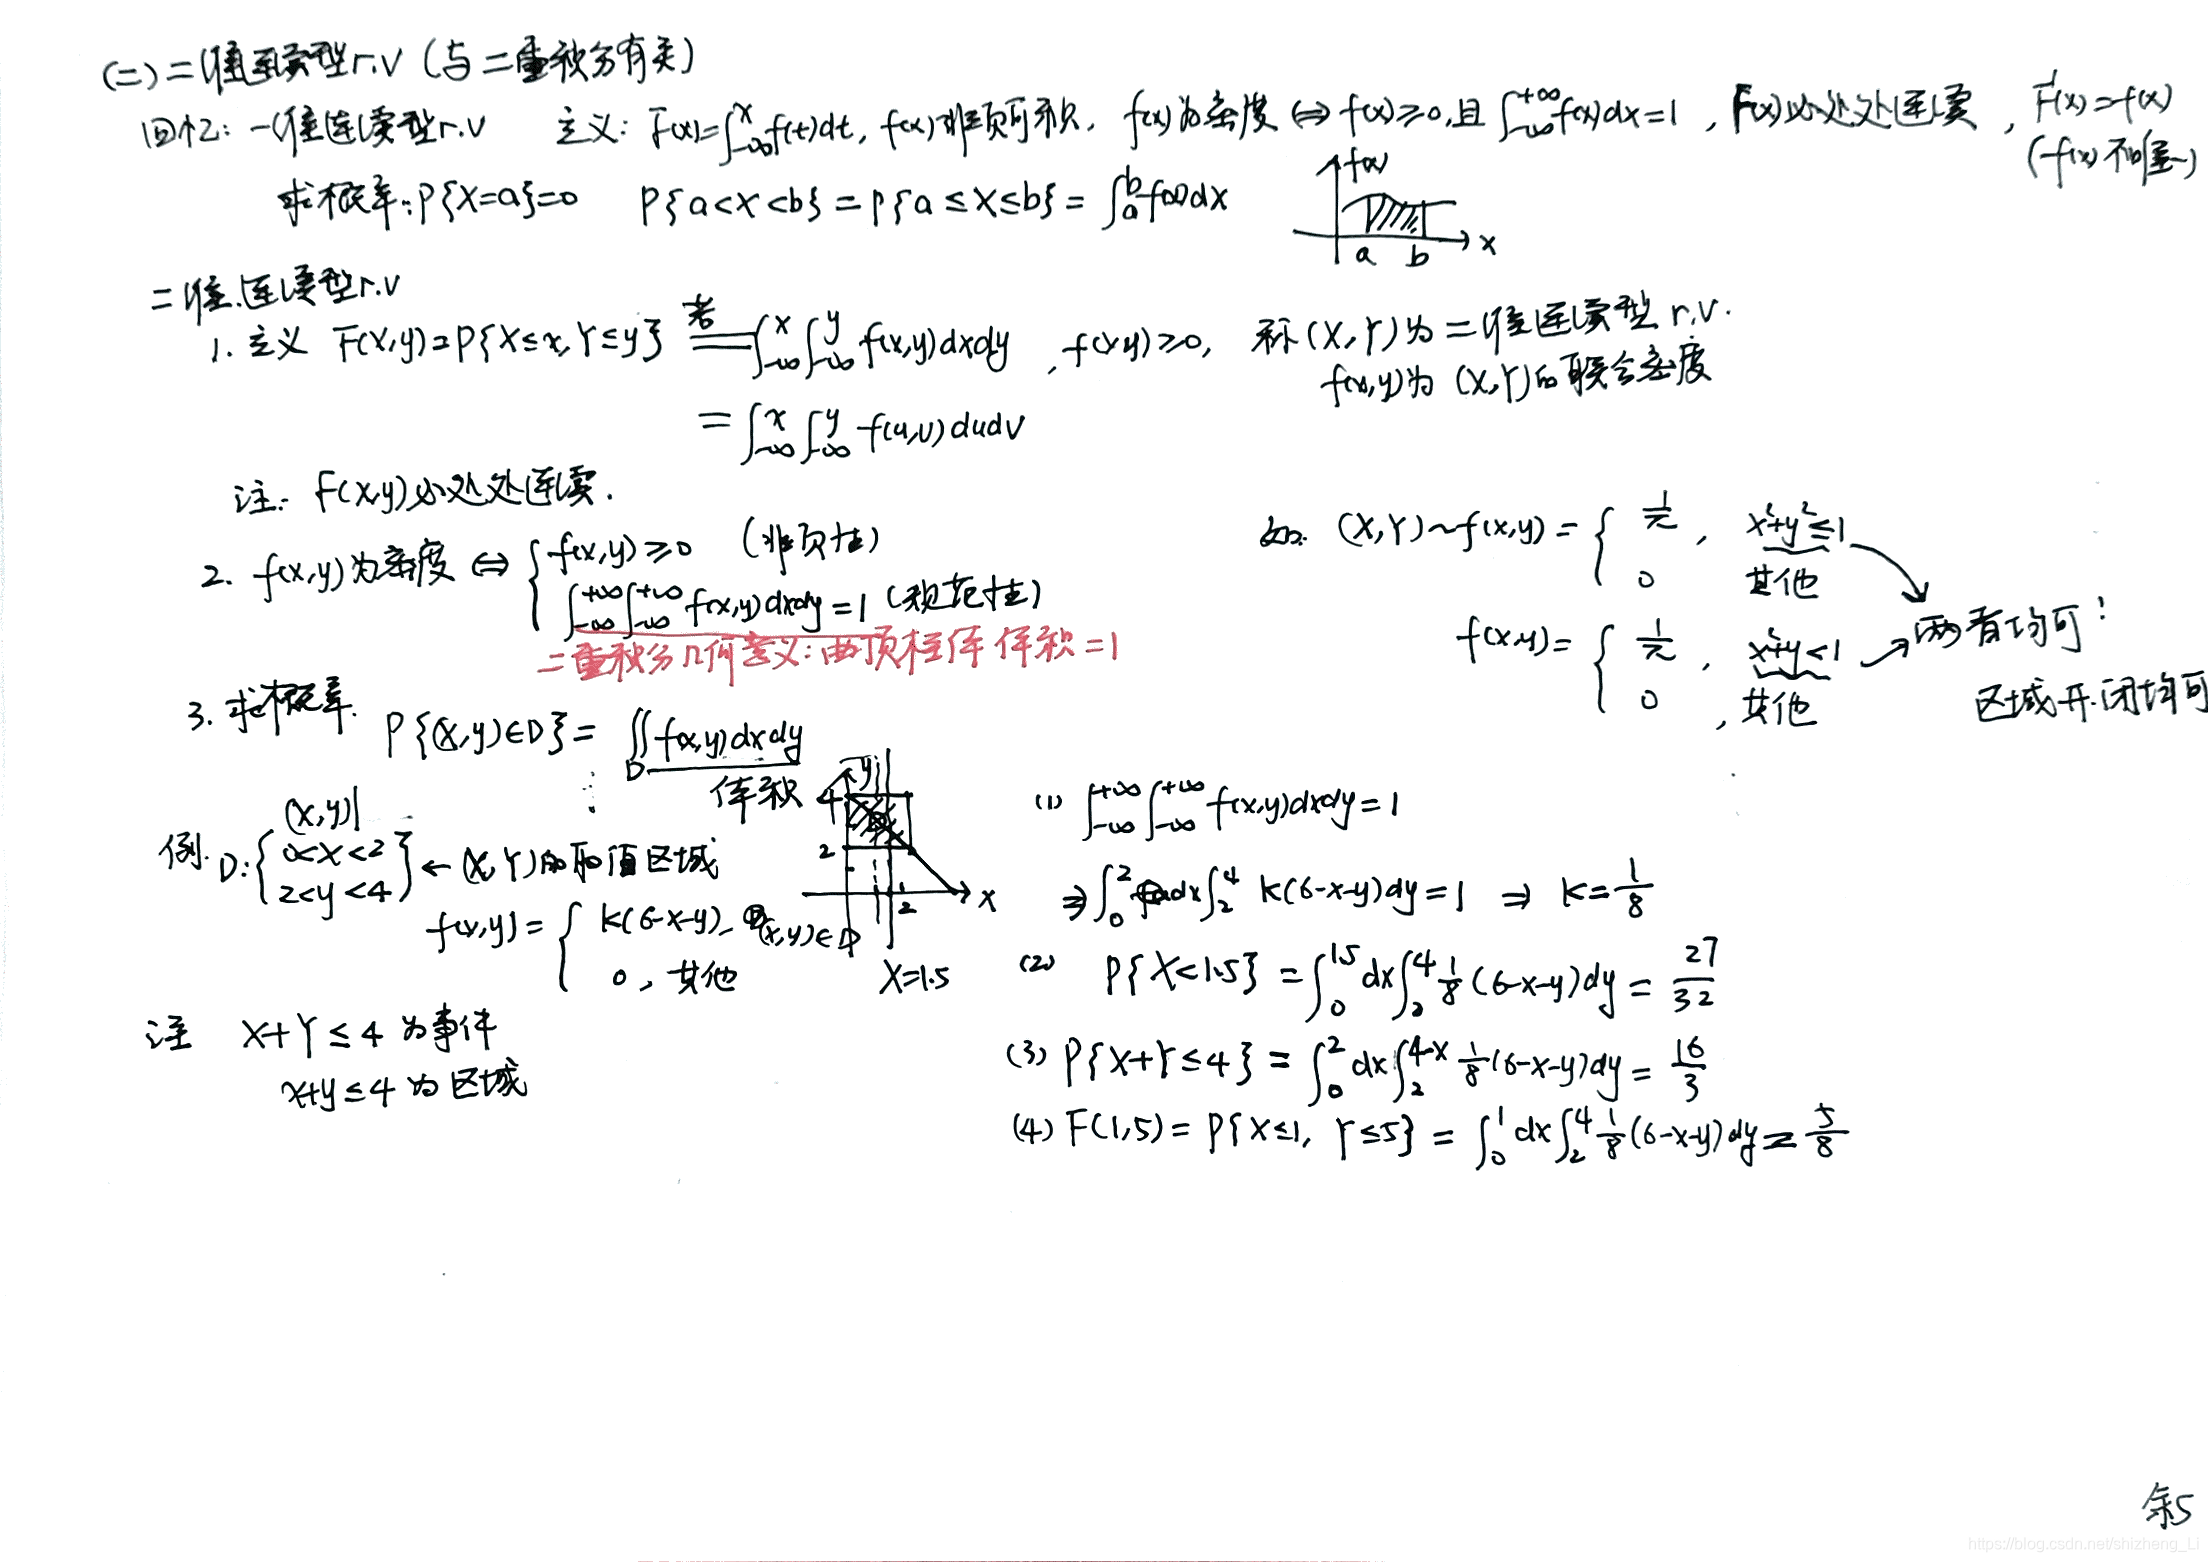 (二) 二维连续型r.v (与二重积分有关)
回忆: 一维连续型r.v 定义: F(x)=∫_{-∞}^{x} f(t)dt, f(x)非负可积, f(x)为密度⇔f(x)≥0,且∫_{-∞}^{+∞}f(x)dx=1, F(x)必处处连续, F'(x)=f(x)
(f(x)不唯一)
求概率: P{X=a}=0 P{a<X<b}=P{a≤X≤b}=∫_a^b f(x)dx
f(x)
a b x
二维连续型r.v
1. 定义 F(x,y)=P{X≤x,Y≤y} 若= ∫_{-∞}^{x}∫_{-∞}^{y} f(x,y)dxdy, f(x,y)≥0, 称(X,Y)为二维连续型r.v.
f(x,y)为(X,Y)的联合密度
=∫_{-∞}^{x}∫_{-∞}^{y} f(u,v)dudv
注: F(x,y)必处处连续.
2. f(x,y)为密度⇔{ f(x,y)≥0 (非负性)
∫_{-∞}^{+∞}∫_{-∞}^{+∞} f(x,y)dxdy=1 (规范性)
二重积分几何意义: 曲顶柱体体积=1
如: (X,Y)~f(x,y)={ 1/π, x²+y²≤1
0 其他
f(x,y)={ 1/π, x²+y²<1
0, 其他
两者均可!
区域开.闭均可
3. 求概率.
P{(X,Y)∈D}=∬_D f(x,y)dxdy
体积
例. D:{ (x,y)|
0<x<2
2<y<4 } ← (X,Y)的取值区域
f(x,y)={ k(6-x-y), (x,y)∈D
0, 其他
4 y
2
2 x
X=1.5
注 X+Y≤4 为事件
x+y≤4 为区域
(1) ∫_{-∞}^{+∞}∫_{-∞}^{+∞} f(x,y)dxdy=1
⇒∫_0^2 dx∫_2^4 k(6-x-y)dy=1 ⇒ k=1/8
(2) P{X<1.5}=∫_0^{1.5}dx∫_2^4 1/8(6-x-y)dy=27/32
(3) P{X+Y≤4}=∫_0^2 dx∫_2^{4-x} 1/8(6-x-y)dy=16/3
(4) F(1,5)=P{X≤1, Y≤5}=∫_0^1 dx∫_2^4 1/8(6-x-y)dy=5/8
余5
https://blog.csdn.net/shizheng_Li